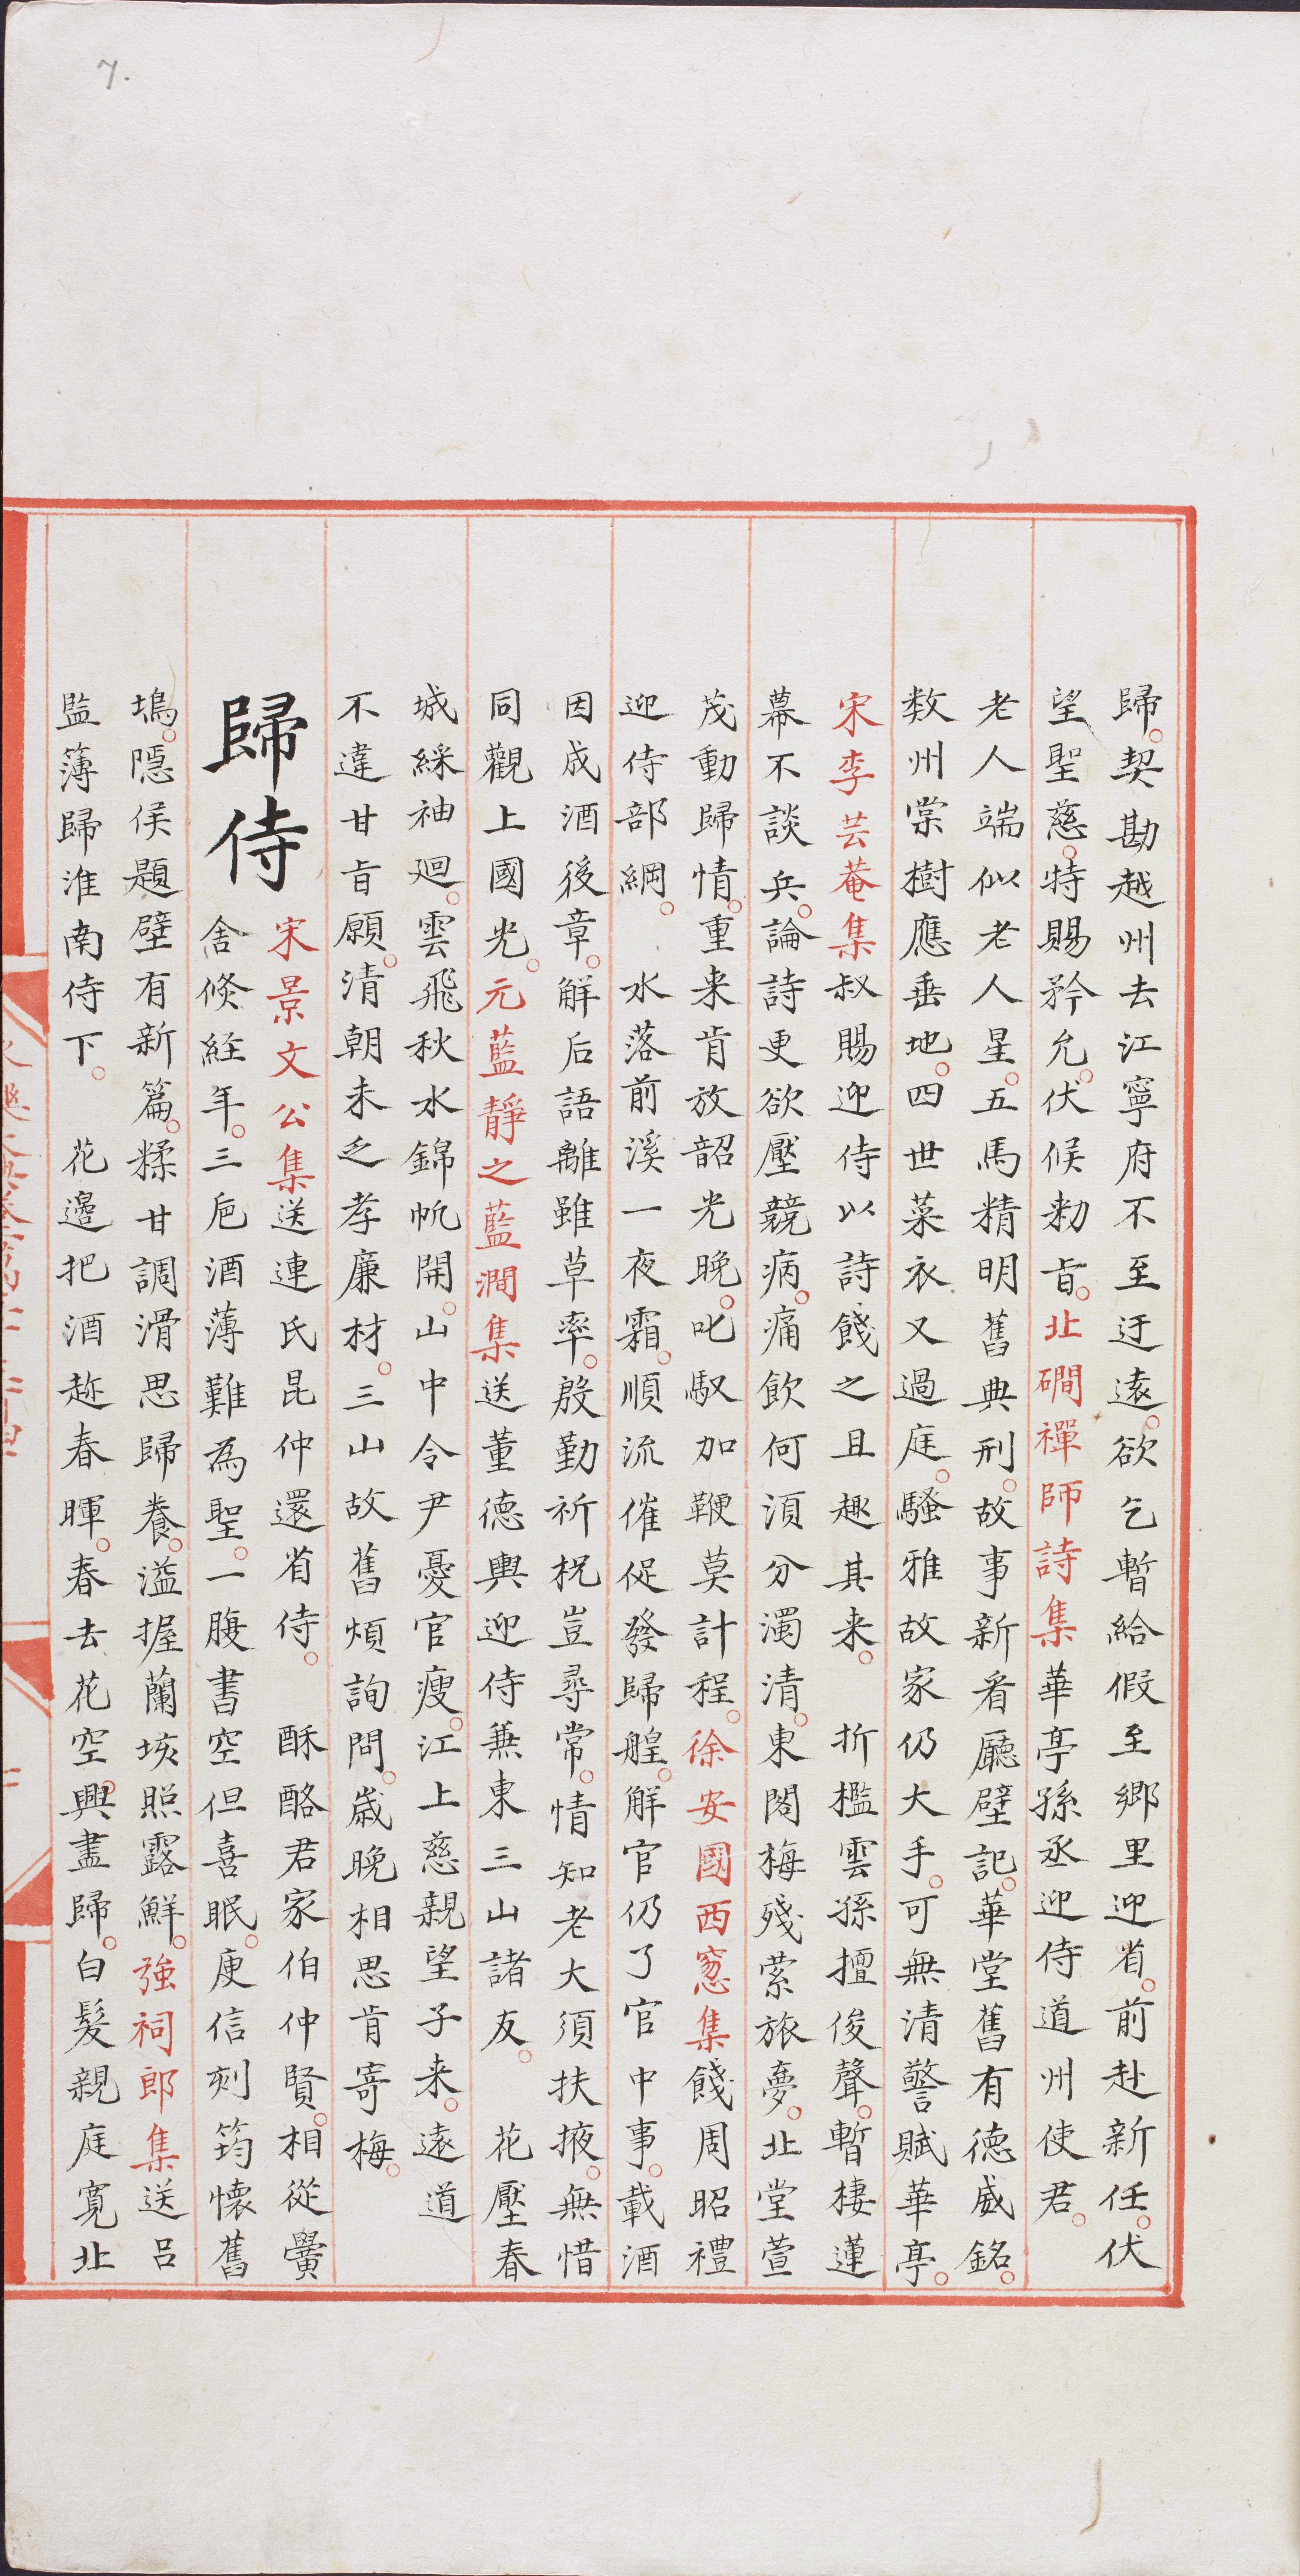 7.
歸。契勘越州去江寧府不至迂遠。欲乞暫給假至鄉里迎省。前赴新任。伏
望聖慈。特賜矜允。伏候勑旨。北磵禪師詩集華亭孫丞迎侍道州使君。
老人端似老人星。五馬精明舊典刑。故事新看廳壁記。華堂舊有德威銘。
数州棠樹應垂地。四世菜衣又過庭。騷雅故家仍大手。可無清警賦華亭。
宋李芸菴集叔賜迎侍以詩餞之且趣其来。折檻雲孫擅俊聲。暫棲蓮
幕不談兵。論詩更欲壓競病。痛飲何湏分濁清。東閣梅殘縈旅夢。北堂萱
茂動歸情。重来肯放韶光晚。叱馭加鞭莫計程。徐安國西窻集餞周昭禮
迎侍部綱。水落前溪一夜霜。順流催促發歸艎。解官仍了官中事。載酒
因成酒後章。解后語離雖草率。殷勤祈祝豈尋常。情知老大須扶掖。無惜
同觀上國光。元藍靜之藍澗集送董德輿迎侍兼東三山諸友。花壓春
城綵袖廻。雲飛秋水錦帆開。山中令尹憂官瘦。江上慈親望子来。遠道
不違甘旨願。清朝未乏孝廉材。三山故舊煩詢問。歲晚相思肯寄梅。
歸侍宋景文公集送連氏昆仲還省侍。酥酪君家伯仲賢。相從黌
舍倐経年。三巵酒薄難為聖。一腹書空但喜眠。庾信刻筠懷舊
塢。隱侯題壁有新篇。糅甘調滑思歸養。溢握蘭垓照露鮮。強祠郎集送呂
監簿歸淮南侍下。花邊把酒趂春暉。春去花空興盡歸。白髮親庭寬北